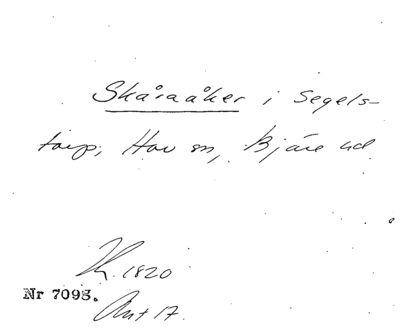 Skåraåker i Segels-
torp, Hov sn, Bjäre hd
K. 1820
Nr 7093.
Ant 17.